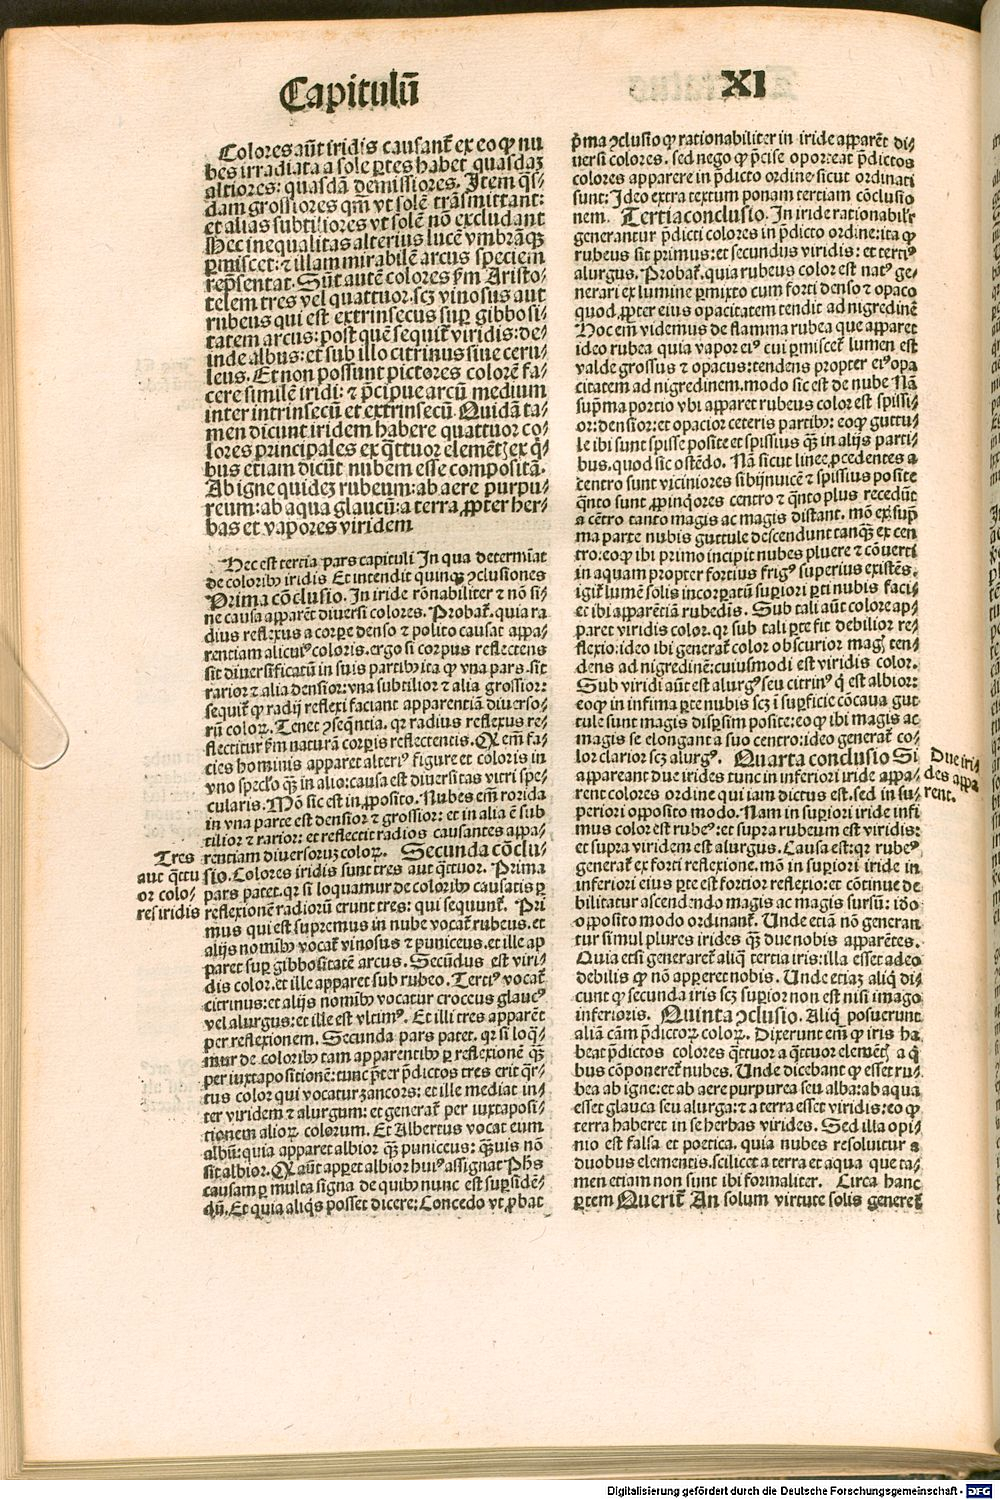 Capitulū XI
Colores aūt iridis causant̄ ex eo ꝙ nu
bes irradiata a sole ꝑtes habet quasdaꝫ
altiores: quasdā demissiores. Itē q̄s⸗
dam grossiores qm̄ vt solē trāsmittant:
et alias subtiliores vt solē nō excludant
Hec inequalitas alterius lucē vmbrāqꝫ
ꝑmiscet: ⁊ illam mirabilē arcus speciem
rep̄sentat. Sūt autē colores ẜm Aristo⸗
telem tres vel quattuor. scꝫ vinosus aut
rubeus qui est extrinsecus suꝑ gibbosi⸗
tatem arcus: post quē sequit̄ viridis: de⸗
inde albus: et sub illo citrinus siue ceru⸗
leus. Et non possunt pictores colorē fa⸗
cere similē iridi: ⁊ p̄cipue arcū medium
inter intrinsecū et extrinsecū. Quidā ta⸗
men dicunt iridem habere quattuor co⸗
lores principales ex q̄ttuor elemētꝭ ex q̇⸗
bus etiam dicūt nubem esse compositā.
Ab igne quideꝫ rubeum: ab aere purpu⸗
reum: ab aqua glaucū: a terra ꝓpter her⸗
bas et vapores viridem
Hec est tertia pars capituli In qua determiat
de coloribꝰ iridis Et intendit quinqꝫ ꝯclusiones
Prima cōclusio. In iride rōnabiliter ⁊ nō si⸗
ne causa apparēt diuersi colores. Probat̄. quia ra
dius reflexus a corꝑe denso ⁊ polito causat appa⸗
rentiam alicuiꝰ coloris. ergo si corpus reflectens
sit diuersificatū in suis partibꝰ ita ꝙ vna pars sit
rarior ⁊ alia densior: vna subtilior ⁊ alia grossior:
sequit̄ ꝙ radij reflexi faciant apparentiā diuerso⸗
rū coloꝝ. Tenet ꝯseq̄ntia. qꝛ radius reflexus re⸗
flectitur ẜm naturā corꝑis reflectentis. Exem̄ fa⸗
cies hominis apparet alteriꝰ figure et coloris in
vno spec̄lo qꝫ in alio: causa est diuersitas vitri spe⸗
cularis. Mō sic est in ꝓposito. Nubes em̄ rorida
in vna parte est densior ⁊ grossior: et in alia ē sub
tilior ⁊ rarior: et reflectit radios causantes appa⸗
rentiam diuersoruꝫ coloꝝ. Secunda cōclu⸗
sio. Colores iridis sunt tres aut q̄ttuor. Prima
pars patet. qꝛ si loquamur de coloribꝰ causatis ꝑ
reflexionē radiorū erunt tres: qui sequunt̄. Pri
mus qui est supremus in nube vocat̄ rubeus. et
alijs nomibꝰ vocat̄ vinosus ⁊ puniceus. et ille ap
paret suꝑ gibbositatē arcus. Secūdus est viri⸗
dis color. et ille apparet sub rubeo. Tertiꝰ vocat̄
citrinus: et alijs nomībꝰ vocatur croceus glaucꝰ
vel alurgus: et ille est vltimꝰ. Et illi tres apparēt
per reflexionem. Secunda pars patet. qꝛ si loq̄⸗
mur de coloribꝰ tam apparentibꝰ ꝑ reflexionē qꝫ
per iuxtapositionē: tunc p̄ter p̄dictos tres erit q̄r⸗
tus color qui vocatur zancors: et ille mediat in⸗
ter viridem ⁊ alurgum: et generat̄ per iuxtaposi⸗
tionem alioꝝ colorum. Et Albertus vocat eum
albū: quia apparet albior qꝫ puniceus: qꝫuis nō
sit albior. Q aūt appꝫet albior huiꝰ assignat Phs
causam ꝑ multa signa de quibꝰ nunc est suꝑsidē⸗
dū. Et quia aliq̇s posset dicere: Concedo vt ꝓbat
Tres
aut q̄ttu
or colo⸗
res iridis
p̄ma ꝯclusio ꝙ rationabiliter in iride apparēt di⸗
uersi colores. sed nego ꝙ p̄cise oporteat p̄dictos
colores apparere in p̄dicto ordine sicut ordinati
sunt: Ideo extra textum ponam tertiam cōclusio
nem. Tertia conclusio. In iride rationabilr̄
generantur p̄dicti colores in p̄dicto ordine: ita ꝙ
rubeus sit primus: et secundus viridis: et tertiꝰ
alurgus. Probat̄. quia rubeus color est natꝰ ge⸗
nerari ex lumine ꝑmixto cum forti denso ⁊ opaco
quod ꝓpter eius opacitatem tendit ad nigredinē
Hoc em̄ videmus de flamma rubea que apparet
ideo rubea quia vapor eiꝰ cui ꝑmiscet̄ lumen est
valde grossus ⁊ opacus: tendens propter eiꝰ opa
citatem ad nigredinem. modo sic est de nube Nā
sup̄ma portio vbi apparet rubeus color est spissi⸗
or: densior: et opacior ceteris partibꝰ: eoꝙ guttu⸗
le ibi sunt spisse posite et spissius qꝫ in alijs parti⸗
bus. quod sic ostēdo. Nā sicut linee ꝓcedentes a
centro sunt viciniores sibijnuicē ⁊ spissius posite
q̄nto sunt ꝓpinq̇ores centro ⁊ q̄nto plus recedūt
a cētro tanto magis ac magis distant. mō ex sup̄
ma parte nubis guttule descendunt tanqꝫ ex cen
tro: eoꝙ ibi primo incipit nubes pluere ⁊ cōuerti
in aquam propter fortius frigꝰ superius existēs.
igit̄ lumē solis incorꝑatū suꝑiori ꝑti nubis faci⸗
et ibi apparētiā rubedis. Sub tali aūt colore ap⸗
paret viridis color. qꝛ sub tali ꝑte fit debilior re⸗
flexio: ideo ibi generat̄ color obscurior magꝭ ten⸗
dens ad nigredinē: cuiusmodi est viridis color.
Sub viridi aūt est alurgꝰ seu citrinꝰ q̇ est albior:
eoꝙ in infima ꝑte nubis scꝫ ī suꝑficie cōcaua gut
tule sunt magis disꝑsim posite: eoꝙ ibi magis ac
magis se elongant a suo centro: ideo generat̄ co⸗
lor clarior scꝫ alurgꝰ. Quarta conclusio Si
appareant due irides tunc in inferiori iride appa⸗
rent colores ordine qui iam dictus est. sed in su⸗
periori opposito modo. Nam in suꝑiori iride infi
mus color est rubeꝰ: et supra rubeum est viridis:
et supra viridem est alurgus. Causa est: qꝛ rubeꝰ
generat̄ ex forti reflexione. mō in suꝑiori iride in
inferiori eius ꝑte est fortior reflexio: et cōtinue de
bilitatur ascendendo magis ac magis sursū: iđo
opposito modo ordinant̄. Unde etiā nō generan
tur simul plures irides qꝫ due nobis apparētes.
Quia etsi generaret̄ aliq̄ tertia iris: illa esset adeo
debilis ꝙ nō apperet nobis. Unde etiaꝫ aliq̇ di⸗
cunt ꝙ secunda iris scꝫ suꝑior non est nisi imago
inferioris. Quinta ꝯclusio. Aliq̇ posuerunt
aliā cām p̄dictoꝝ coloꝝ. Dixerunt em̄ ꝙ iris ha
beat p̄dictos colores q̄ttuor a q̄ttuor elemētꝭ a q̇
bus cōponeret̄ nubes. Unde dicebant ꝙ esset ru⸗
bea ab igne: et ab aere purpurea seu alba: ab aqua
esset glauca seu alurga: ⁊ a terra esset viridis: eo ꝙ
terra haberet in se herbas virides. Sed illa opi⸗
nio est falsa et poetica. quia nubes resoluitur a
duobus elementis. scilicet a terra et aqua que ta⸗
men etiam non sunt ibi formaliter. Circa hanc
ꝑtem Querit̄ An solum virtute solis generet̄
Due iri⸗
des appa
rent.
Digitalisierung gefördert durch die Deutsche Forschungsgemeinschaft - DFG